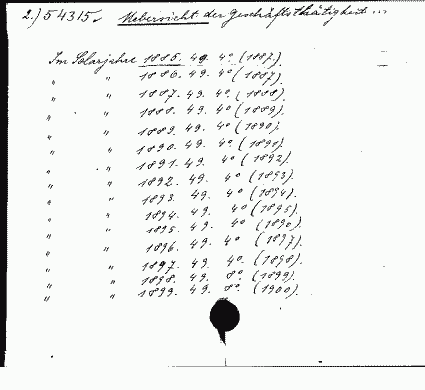 2.) 54315. Uebersicht der Geschäftsthätigkeit ...
Im Solarjahre 1885. 49. 4° (1887.)
" " 1886. 49. 4° (1887).
" " 1887. 49. 4°. (1888).
" " 1888. 49. 4° (1889).
" " 1889. 49. 4° (1890).
" " 1890. 49. 4° (1891).
" " 1891. 49. 4° (1892).
" " 1892. 49. 4° (1893).
" " 1893. 49. 4° (1894).
" " 1894. 49. 4° (1895).
" " 1895. 49. 4° (1896).
" " 1896. 49. 4° (1897).
" " 1897. 49. 4°. (1898).
" " 1898. 49. 8°. (1899).
" " 1899. 49. 8°. (1900).